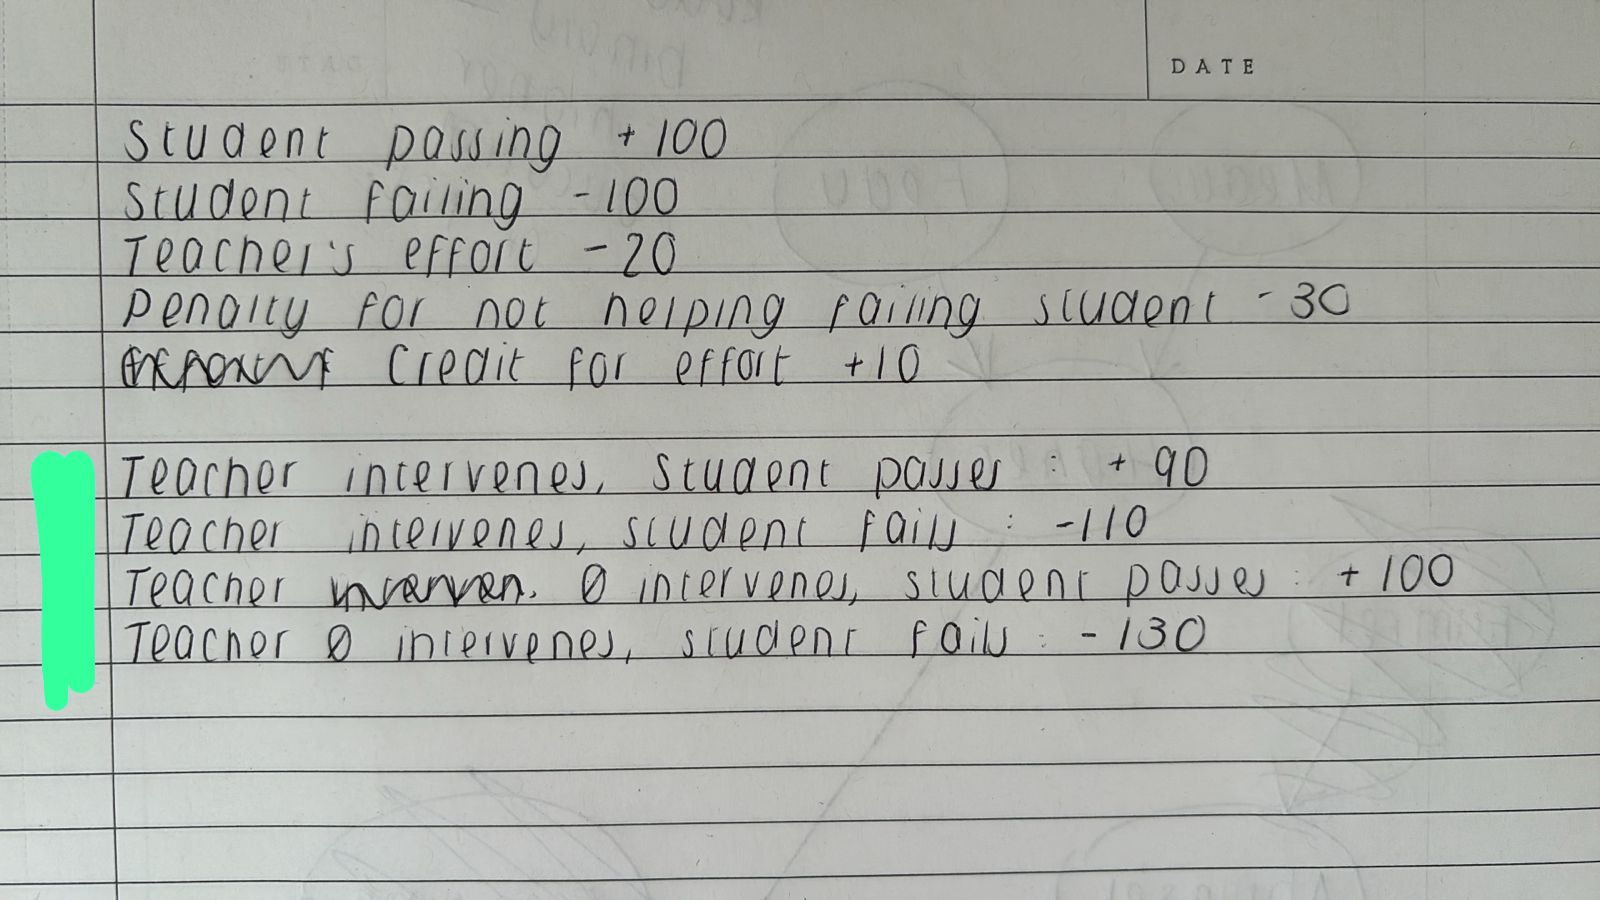 DATE
Student passing +100
Student failing -100
Teacher's effort -20
Penalty for not helping failing student -30
Credit for effort +10
Teacher intervenes, student passes : +90
Teacher intervenes, student fails : -110
Teacher Ø intervenes, student passes : +100
Teacher Ø intervenes, student fails : -130